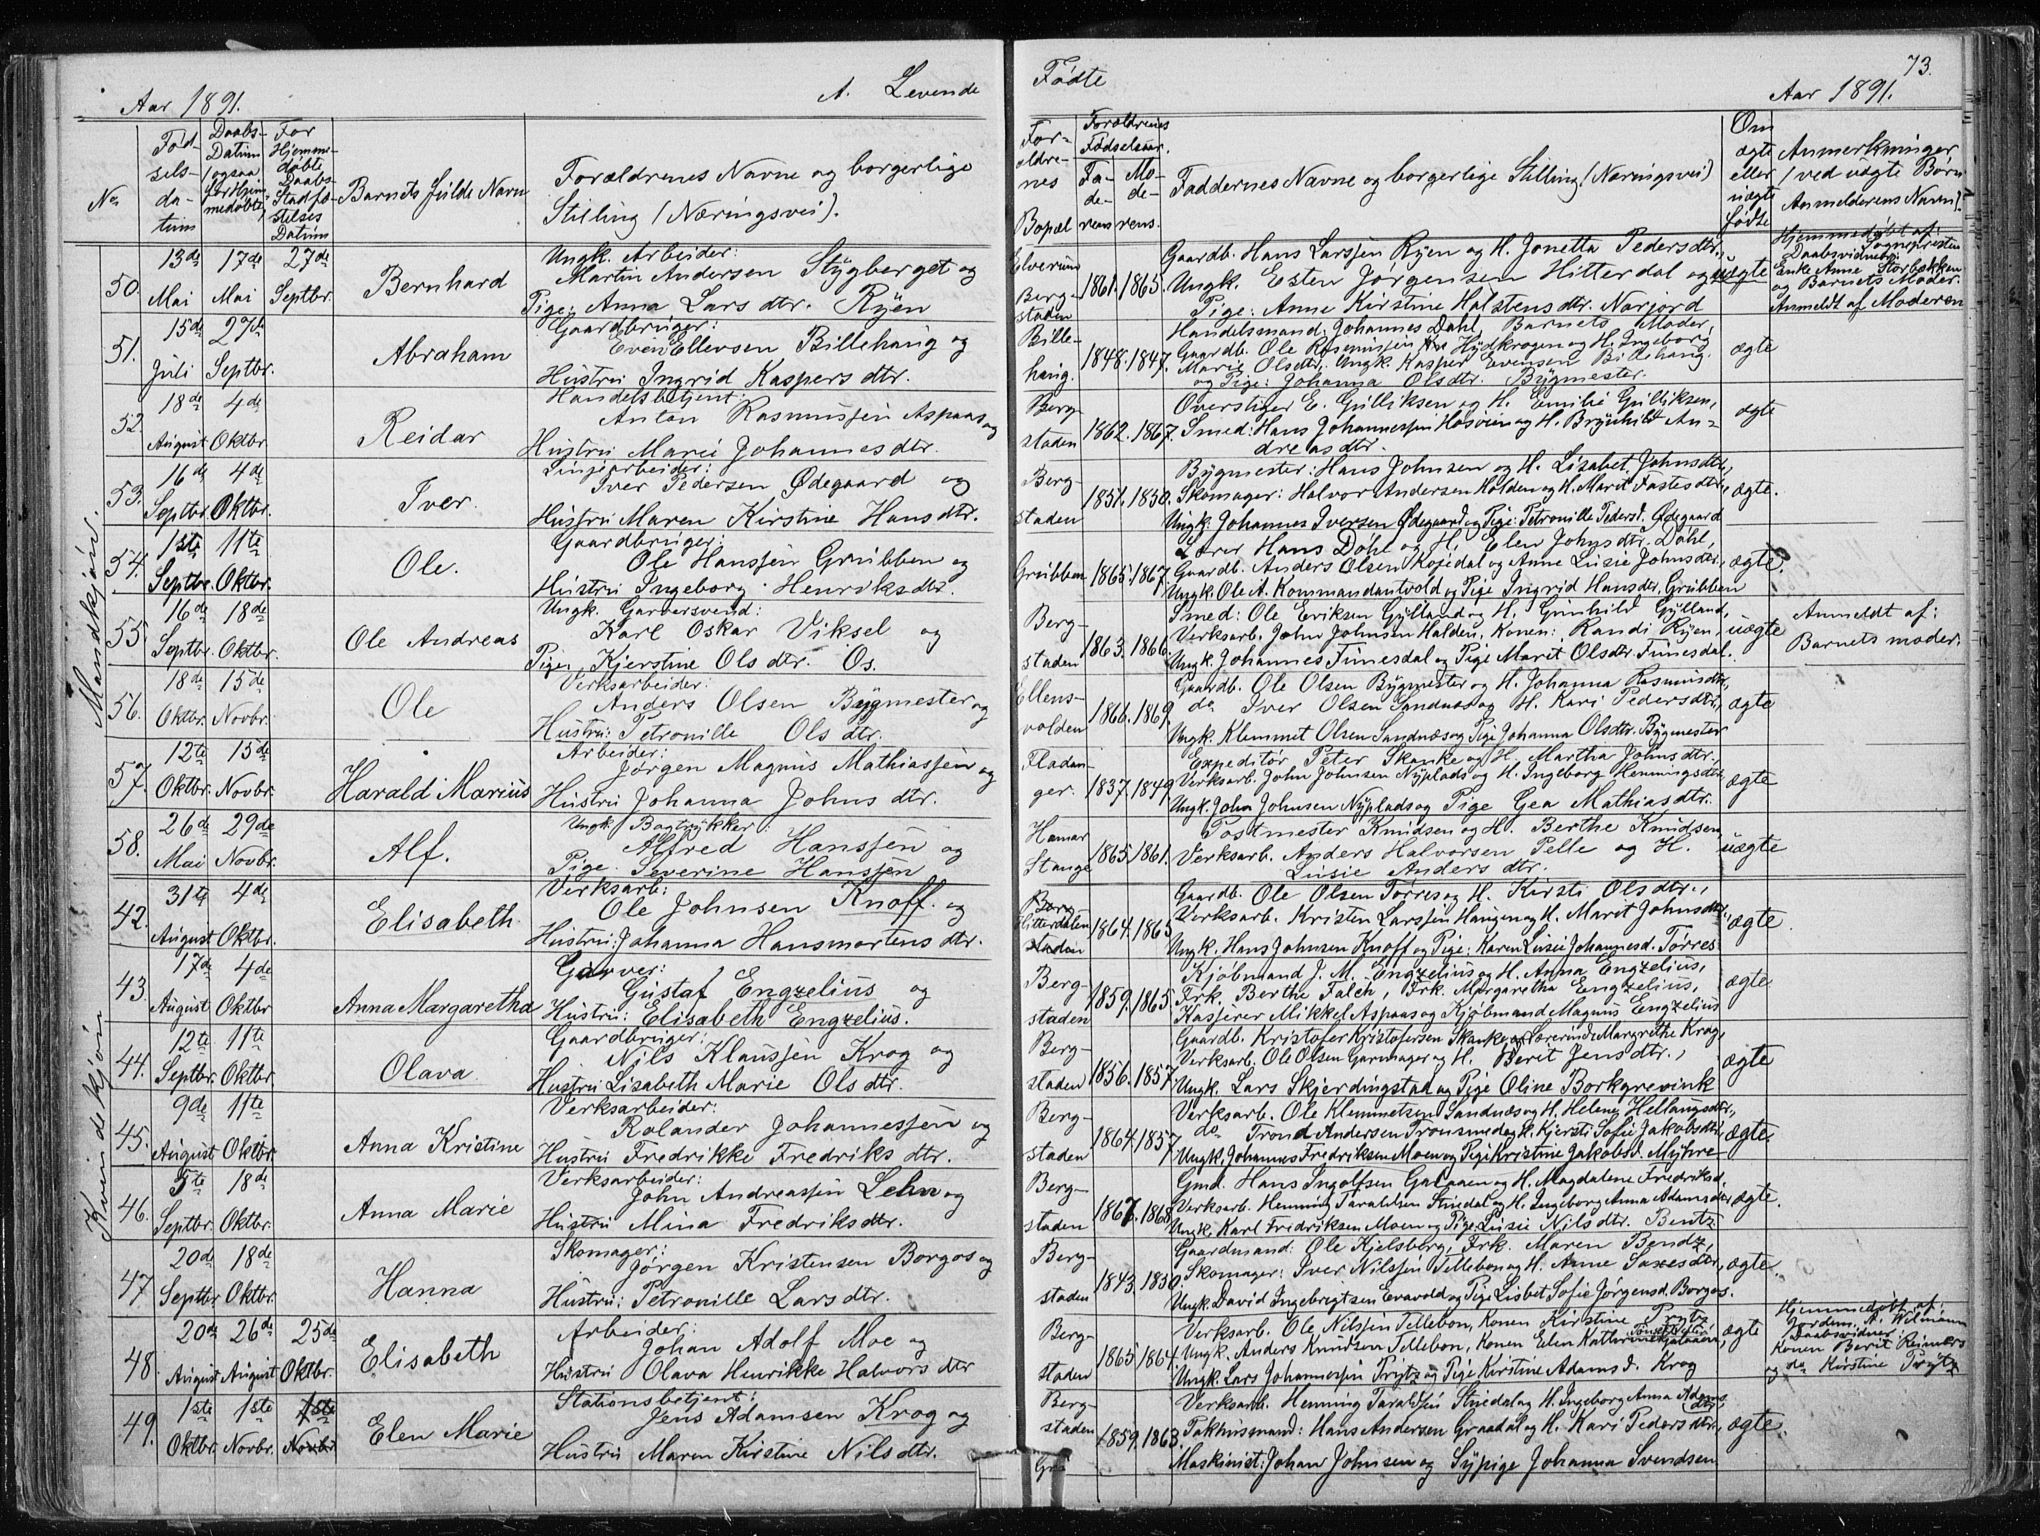 Aar 1891.
A. Levende
Fødte
73.
Aar 1891.
No
Fød-
sels-
da-
tum
Daabs-
Datum
(ogsaa
for Hjem-
medøbte)
For
Hjemme-
døbte
Daabs-
Stadfæ-
stelses
Datum
Barnets fulde Navn
Forældrenes Navne og borgerlige
Stilling (Næringsvei).
For-
ældre-
nes
Bopæl
Forældrenes
Fødselsaar.
Fa-
de-
rens
Mo-
de-
rens.
Faddernes Navne og borgerlige Stilling (Næringsvei)
Om
ægte
eller
uægte
fødte
Anmerkninger
(ved uægte Børn
Anmelderens Navn).
Mandkjøn.
50.
13de
Mai
17de
Mai
27de
Septbr.
Bernhard
Ungk. Arbeider:
Martin Andersen Stygberget og
Pige: Anna Lars dtr. Ryen
Elverum
Berg-
staden
1861. 1865.
Gaardb. Hans Larssen Ryen og H. Jonetta Pedersdtr.
Ungk. Esten Jørgensen Hitterdal og
Pige: Anne Kirstine Halstensdtr. Narjord
uægte
Hjemmedøbt af:
Sognepresten
Daabsvidner:
Enke Anne Storbækken
og Barnets Moder.
Anmeldt af Moderen
51.
15de
Juli
27de
Septbr.
Abraham
Gaardbruger:
Even Ellevsen Billehaug og
Hustru Ingrid Kaspersdtr.
Bille-
haug.
1848. 1847.
Handelsmand: Johannes Dahl, Barnets Moder,
Gaardb. Ole Rasmussen Hydkrogen og H. Ingeborg
Marie Olsdtr. Ungk. Kasper Evensen Billehaug.
og Pige: Johanna Olsdtr. Bygmester.
ægte
52.
18de
August
4de
Oktbr.
Reidar
Handelsbetjent:
Anton Rasmussen Aspaas og
Hustru Marie Johannesdtr.
Berg-
staden
1862. 1867.
Overstiger E. Gulliksen og H. Emilie Gulliksen,
Smed: Hans Johannessen Hosøien og H. Brynhild An-
dreasdtr.
ægte
53.
16de
Septbr.
4de
Oktbr.
Iver.
Linjearbeider:
Iver Pedersen Ødegaard og
Hustru Maren Kirstine Hansdtr.
Berg-
staden
1851. 1850.
Bygmester: Hans Johnsen og H. Lisabet Johnsdtr,
Skomager: Halvor Andersen Holden og H. Marit Fastesdtr,
Ungk. Johannes Iversen Ødegaard og Pige: Petronille Pedersd. Ødegaard
ægte.
54.
1ste
Septbr.
11te
Oktbr.
Ole.
Gaardbruger:
Ole Hanssen Grubben og
Hustru Ingeborg Henriksdtr.
Grubben
1865. 1867.
Lærer Hans Døhl og H. Elen Johnsdtr. Døhl,
Gaardb. Anders Olsen Kojedal og Anne Lusie Johnsdtr.
Ungk. Ole A. Kommandantvold og Pige Ingrid Hansdtr. Grubben
ægte.
55.
16de
Septbr.
18de
Oktbr.
Ole Andreas
Ungk. Garversvend:
Karl Oskar Viksel og
Pige, Kjerstine Olsdtr. Os.
Berg-
staden
1863. 1866.
Smed: Ole Eriksen Gylland og H. Gunhild Gylland,
Verksarb. John Johnsen Halden, Konen: Randi Ryen,
Ungk. Johannes Funesdal og Pige Marit Olsdtr. Funesdal.
uægte
Anmeldt af:
Barnets moder.
56.
18de
Oktbr.
15de
Novbr.
Ole
Verksarbeider:
Anders Olsen Bygmester og
Hustru: Petronille Olsdtr.
Ellens-
volden
1866. 1869.
Gaardb. Ole Olsen Bygmester og H. Johanna Rasmusdtr,
do Iver Olsen Sandnæs og H. Kari Pedersdtr,
Ungk. Klemmet Olsen Sandnæs og Pige Johanna Olsdtr. Bygmester
ægte
57.
12te
Oktbr.
15de
Novbr.
Harald Marius
Arbeider:
Jørgen Magnus Mathiassen og
Hustru Johanna Johnsdtr.
Fladan-
ger.
1837. 1849
Expeditør Peter Skanke og H. Martha Johnsdtr.,
Verksarb. John Johnsen Nyplads og H. Ingeborg Henningsdtr,
Ungk. John Johnsen Nyplads og Pige Gea Mathiasdtr.
ægte
58.
26de
Mai
29de
Novbr.
Alf.
Ungk. Bogtrykker:
Alfred Hanssen og
Pige Severine Hanssen
Hamar
Stange
1865. 1861.
Postmester Knudsen og H. Berthe Knudsen
Verksarb. Anders Halvorsen Pelle og H.
Lusie Andersdtr.
uægte
Kvindekjøn
42.
31te
August
4de
Oktbr.
Elisabeth
Verksarb:
Ole Johnsen Knoff. og
Hustru: Johanna Hansmortensdtr.
Berg-
Hitterdalen
staden
1864. 1865
Gaardb. Ole Olsen Torres og H. Kirsti Olsdtr.,
Verksarb. Kristen Larssen Haugen og H. Marit Johnsdtr
Ungk. Hans Johnsen Knoff og Pige: Karen Lusie Johannesd. Torres
ægte
43.
17de
August
4de
Oktbr
Anna Margaretha
Garver:
Gustaf Engzelius og
Hustru: Elisabeth Engzelius.
Berg-
staden
1859. 1865
Kjøbmand J. M. Engzelius og H. Anna Engzelius,
Frk. Berthe Falch, Frk. Margaretha Engzelius,
Kasserer Mikkel Aspaas og Kjøbmand Magnus Engzelius
ægte
44.
12te
Septbr.
11te
Oktbr.
Olava
Gaardbruger:
Nils Klaussen Krog og
Hustru Lisabeth Marie Olsdtr.
Berg-
staden
1856. 1857
Gaardb. Kristofer Kristofersen Skanke og Lærerinde Margrethe Krog,
Verksarb. Ole Olsen Garmager og H. Berit Jensdtr.,
Ungk. Lars Skjerdingstad og Pige Oline Borkgrevink
ægte
45.
9de
August
11te
Oktbr.
Anna Kristine
Verksarbeider:
Rolander Johannessen og
Hustru Fredrikke Fredriksdtr.
Berg-
staden
1864. 1857
Verksarb. Ole Klemmetsen Sandnæs og H. Helene Hellaugsdtr.,
do Trond Andersen Tronsmed og H. Kjersti Sofie Jakobsdtr
Ungk. Johannes Fredriksen Moen og Pige Kristine Jakobsd. Myhre
ægte
46.
5te
Septbr.
18de
Oktbr.
Anna Marie
Verksarbeider:
John Andreassen Lehn og
Hustru Mina Fredriksdtr.
Berg-
staden
1867. 1868
Gmd. Hans Ingolfsen Galaaen og H. Magdalene Fredriksd,
Verksarb. Henning Taraldsen Stuedal og H. Ingeborg Anna Adamsdtr
Ungk. Karl Fredriksen Moen og Pige Lusie Nilsdtr. Bentz
ægte.
47.
20de
Septbr.
18de
Oktbr.
Hanna
Skomager:
Jørgen Kristensen Borgos og
Hustru: Petronille Larsdtr.
Berg-
staden
1843. 1850.
Gaardmand: Ole Kjelsberg, Frk. Maren Bendz,
Skomager: Iver Nilssen Tellebon og H. Anne Saxesdtr,
Ungk. David Ingebrigtsen Evavold og Pige Lisbet Sofie Jørgensd. Borgos.
ægte.
48.
20de
August
26de
August
25de
Oktbr.
Elisabeth
Arbeider:
Johan Adolf Moe og
Hustru Olava Henrikke Halvorsdtr
Berg-
staden
1865. 1864.
Verksarb. Ole Nilssen Tellebon, Konen Kirstine Prytz
Ungk. Anders Knudsen Tellebon, Konen Elen
Ungk. Lars Johannessen Prytz og Pige Kirstine Adamsd. Krog
ægte
Hjemmedøbt af:
Jordem. A. Wilmann
Daabsvidner:
Konen Berit Reimers
og do Kirstine Prytz
49.
1ste
Oktbr.
1ste
Novbr.
1ste
Novbr
Elen Marie
Stationsbetjent:
Jens Adamsen Krog og
Hustru Maren Kirstine Nilsdtr.
Berg-
staden
1859. 1863
Verksarb. Henning Taraldsen Stuedal og H. Ingeborg Anna Adams
dtr,
Pakhusmand: Hans Andersen Graadal og H. Kari Pedersdtr,
Maskinist: Johan Johnsen og Sypige Johanna Svendsen
ægte.